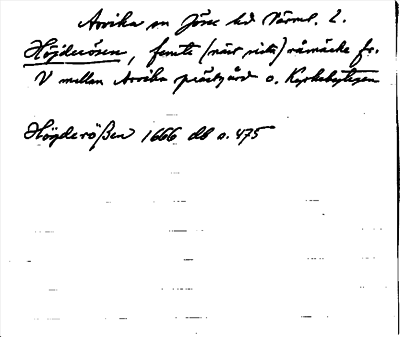 Arvika sn Jösse hd Värml. l.
Höjderösen, femte (näst sista) råmärke fr.
V mellan Arvika prästgård o. Kyrkebytegen
Höÿderößen 1666 db s. 475